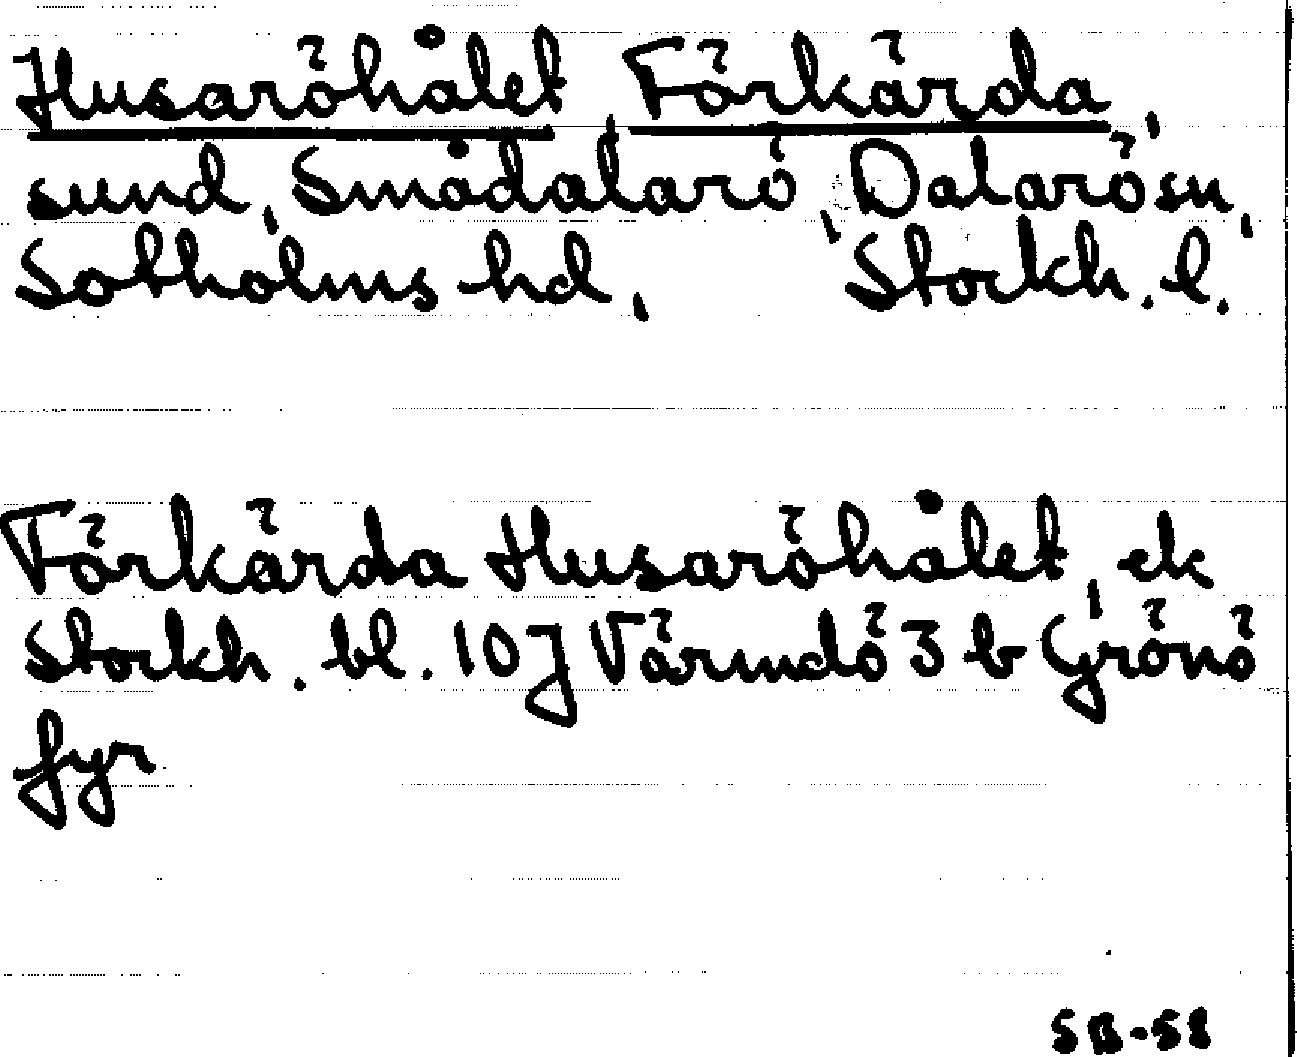 Husaröhålet, Förkärda,
sund, Smådalarö, Dalarö sn,
Sotholms hd, Stockh. l.
Förkärda Husaröhålet, ek
Stockh. bl. 10J Värmdö 3 b Grönö
fyr
SB-58